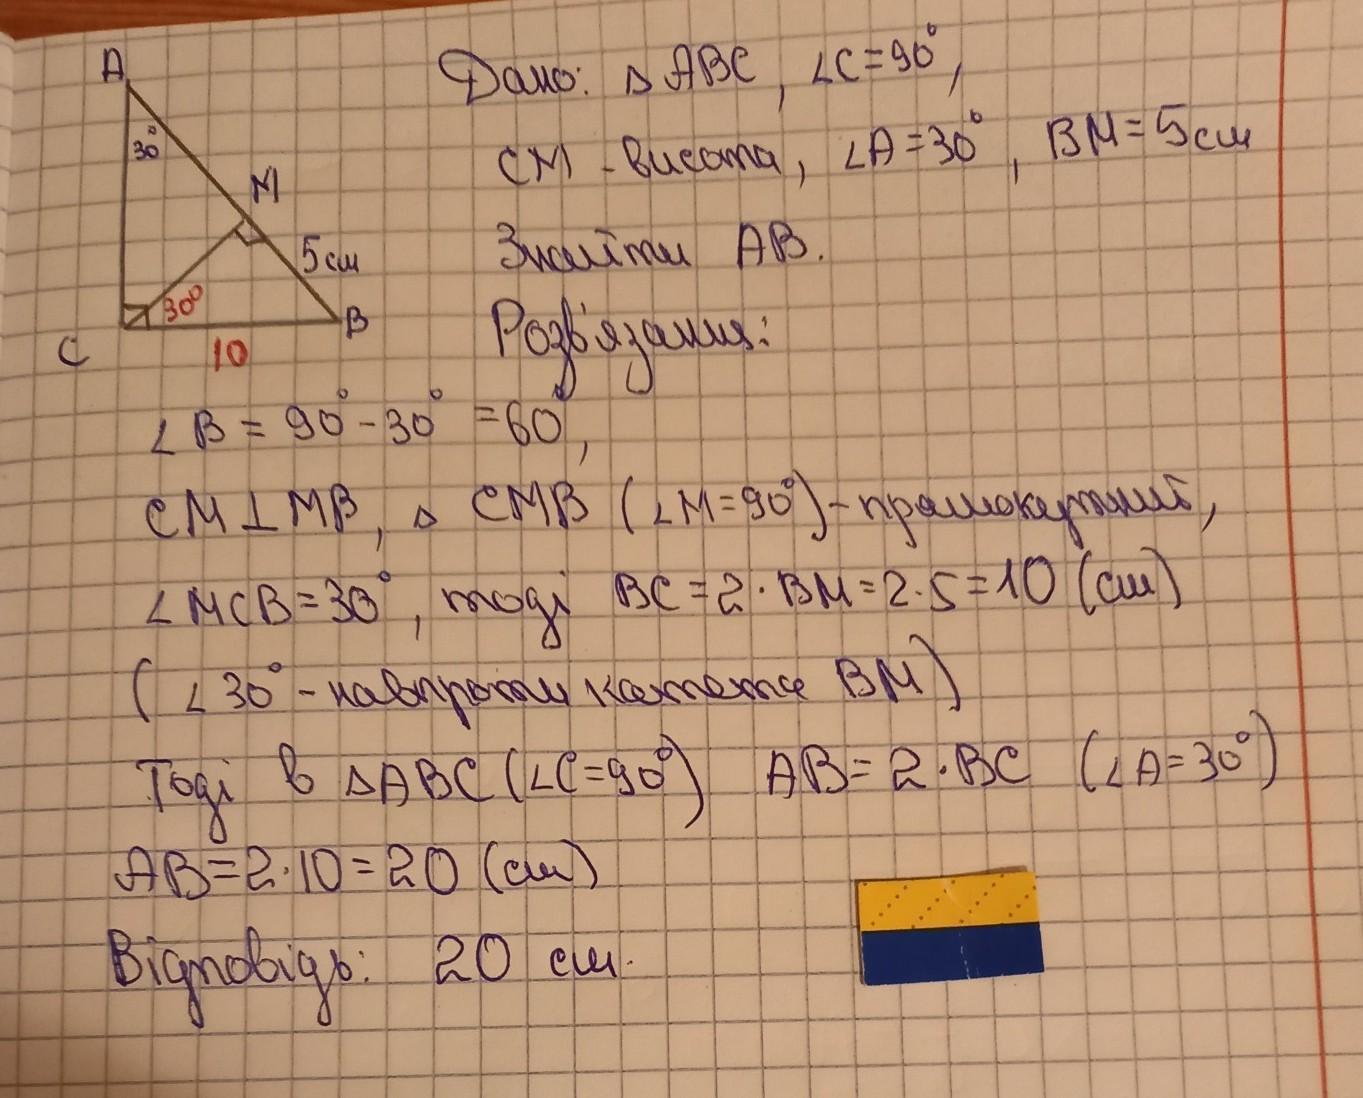 A
30°
M
5см
30°
C
B
10
Дано: △ABC, ∠C=90°,
CM - висота, ∠A=30°, BM=5см
Знайти AB.
Розв'язання:
∠B = 90°-30° =60°,
CM⊥MB, △ CMB (∠M=90°)-прямокутний,
∠MCB=30°, тоді BC=2·BM=2·5=10 (см)
(∠30°-навпроти катета BM)
Тоді в △ABC (∠C=90°) AB=2·BC (∠A=30°)
AB=2·10=20 (см)
Відповідь: 20 см.